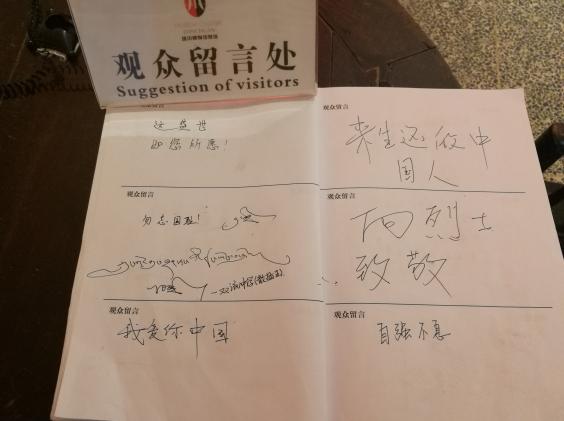 观众留言处
Suggestion of visitors
观众留言
这盛世
如您所愿!
观众留言
勿忘国耻!
观众留言
我爱你中国
观众留言
来生还做中
国人
观众留言
向烈士
致敬
观众留言
自强不息